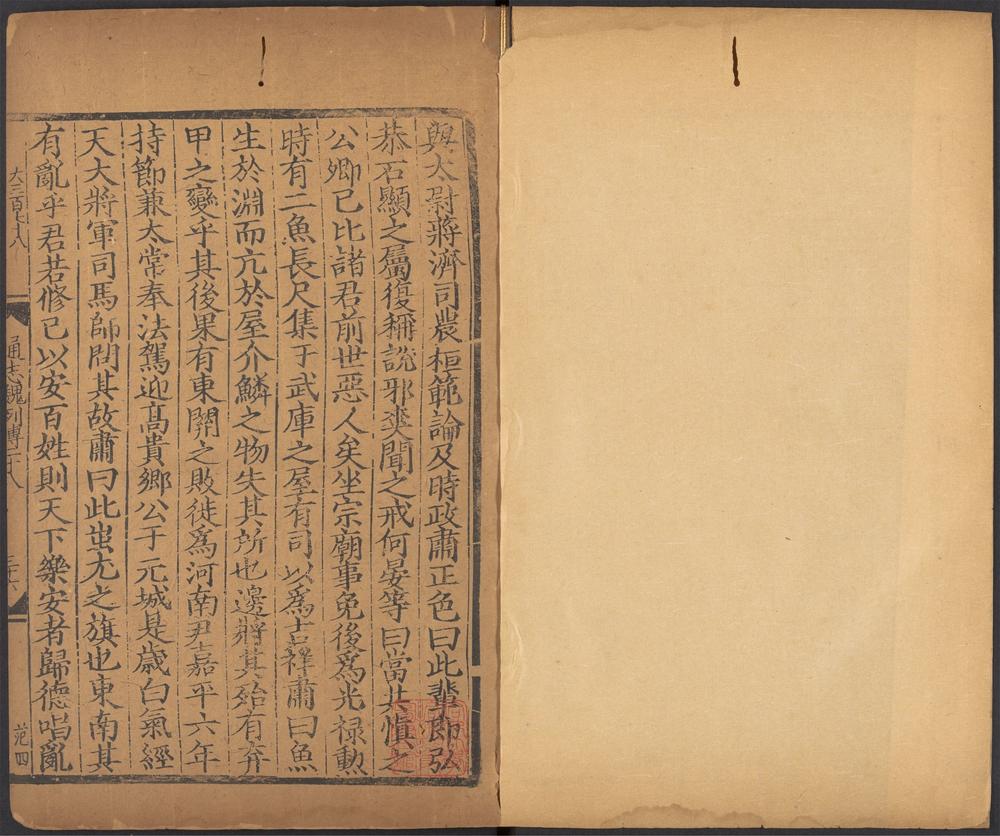 與太尉蔣濟司農桓範論及時政肅正色曰此輩即弘
恭石顯之屬復稱說邪爽聞之戒何晏等曰當共慎之
公卿已比諸君前世惡人矣坐宗廟事免後爲光禄勲
時有二魚長尺集于武庫之屋有司以爲吉祥肅曰魚
生於淵而亢於屋介鱗之物失其所也邊將其殆有弃
甲之變乎其後果有東關之敗徙爲河南尹嘉平六年
持節兼太常奉法駕迎髙貴鄉公于元城是歳白氣經
天大將軍司馬師問其故肅曰此蚩尤之旗也東南其
有亂乎君若修己以安百姓則天下樂安者歸德唱亂
大三百七十八
通志魏列傳二十八
三十六
范四